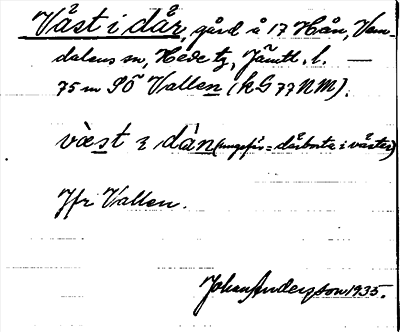 Våst i dår, gård å 17 Hån, Vem-
dalens sn, Hede tg, Jämtl. l. —
75 m SÖ Vallen (kG 77 NM).
væst i dån (ungefär = därborta i väster)
Jfr Vallen.
Johan Andersson 1935.